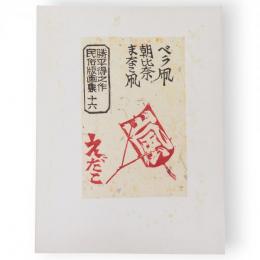 べら凧
朝比奈
まなこ凧
勝平得之作
民俗版画集 十六
風
えだこ